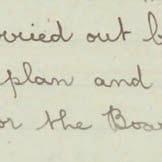 rried out b
plan and
or the Boar